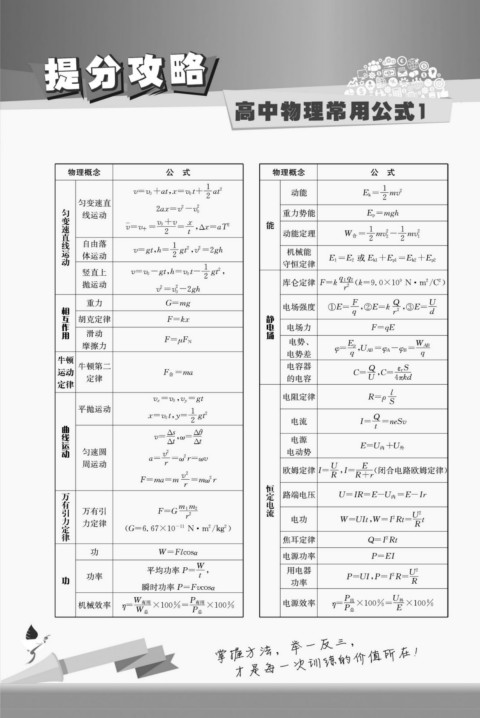 提分攻略
高中物理常用公式1
物理概念 公 式
匀变速直线运动
匀变速直线运动
v=v₀+at,x=v₀t+1/2at²
2ax=v²-v₀²
自由落体运动
v=gt,h=1/2gt²,v²=2gh
竖直上抛运动
v=v₀-gt,h=v₀t-1/2gt²,
v²=v₀²-2gh
相互作用
重力 G=mg
胡克定律 F=kx
滑动摩擦力 F=μF_N
牛顿运动定律
牛顿第二定律 F合=ma
曲线运动
平抛运动
vₓ=v₀,v_y=gt
x=v₀t,y=1/2gt²
匀速圆周运动
v=Δs/Δt,ω=Δθ/Δt
a=v²/r=ω²r=ωv
F=ma=mv²/r=mω²r
万有引力定律
万有引力定律
F=Gm₁m₂/r²
(G=6.67×10⁻¹¹ N·m²/kg²)
功
功 W=Flcosα
功率
平均功率 P=W/t,
瞬时功率 P=Fvcosα
机械效率 η=W有用/W总×100%=P有用/P总×100%
物理概念 公 式
能
动能 Eₖ=1/2mv²
重力势能 Eₚ=mgh
动能定理 W合=1/2mv₂²-1/2mv₁²
机械能守恒定律 E₁=E₂ 或 Eₖ₁+Eₚ₁=Eₖ₂+Eₚ₂
静电场
库仑定律 F=kq₁q₂/r²(k=9.0×10⁹ N·m²/C²)
电场强度 ①E=F/q,②E=kQ/r²,③E=U/d
电场力 F=qE
电势、电势差 φ=Eₚ/q,U_AB=φ_A-φ_B=W_AB/q
电容器的电容 C=Q/U,C=εᵣS/4πkd
恒定电流
电阻定律 R=ρl/S
电流 I=Q/t=neSv
电源电动势 E=U内+U外
欧姆定律 I=U/R,I=E/(R+r)(闭合电路欧姆定律)
路端电压 U=IR=E-U内=E-Ir
电功 W=UIt,W=I²Rt=U²/R t
焦耳定律 Q=I²Rt
电源功率 P=EI
用电器功率 P=UI,P=I²R=U²/R
电源效率 η=P出/P总×100%=U外/E×100%
掌握方法，举一反三，
才是每一次训练的价值所在！